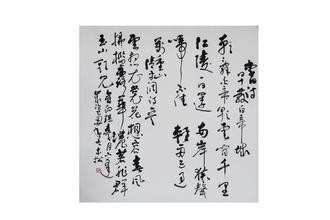 早發白帝城
朝辭白帝彩雲間千里
江陵一日還兩岸猿聲
啼不住輕舟已過
萬重山
雲想衣裳花想容春風
拂檻露華濃若非群
玉山頭見會向瑤台月下逢